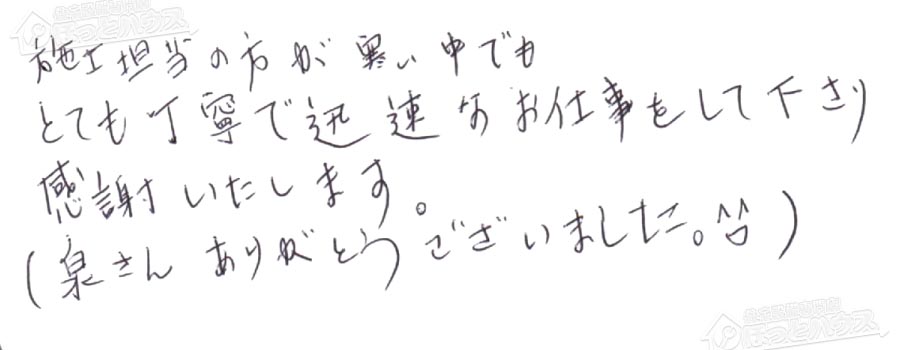 施工担当の方が寒い中でも
とても丁寧で迅速なお仕事をして下さり
感謝いたします。
(泉さん ありがとうございました。^^)
ほっとハウス
ほっとハウス